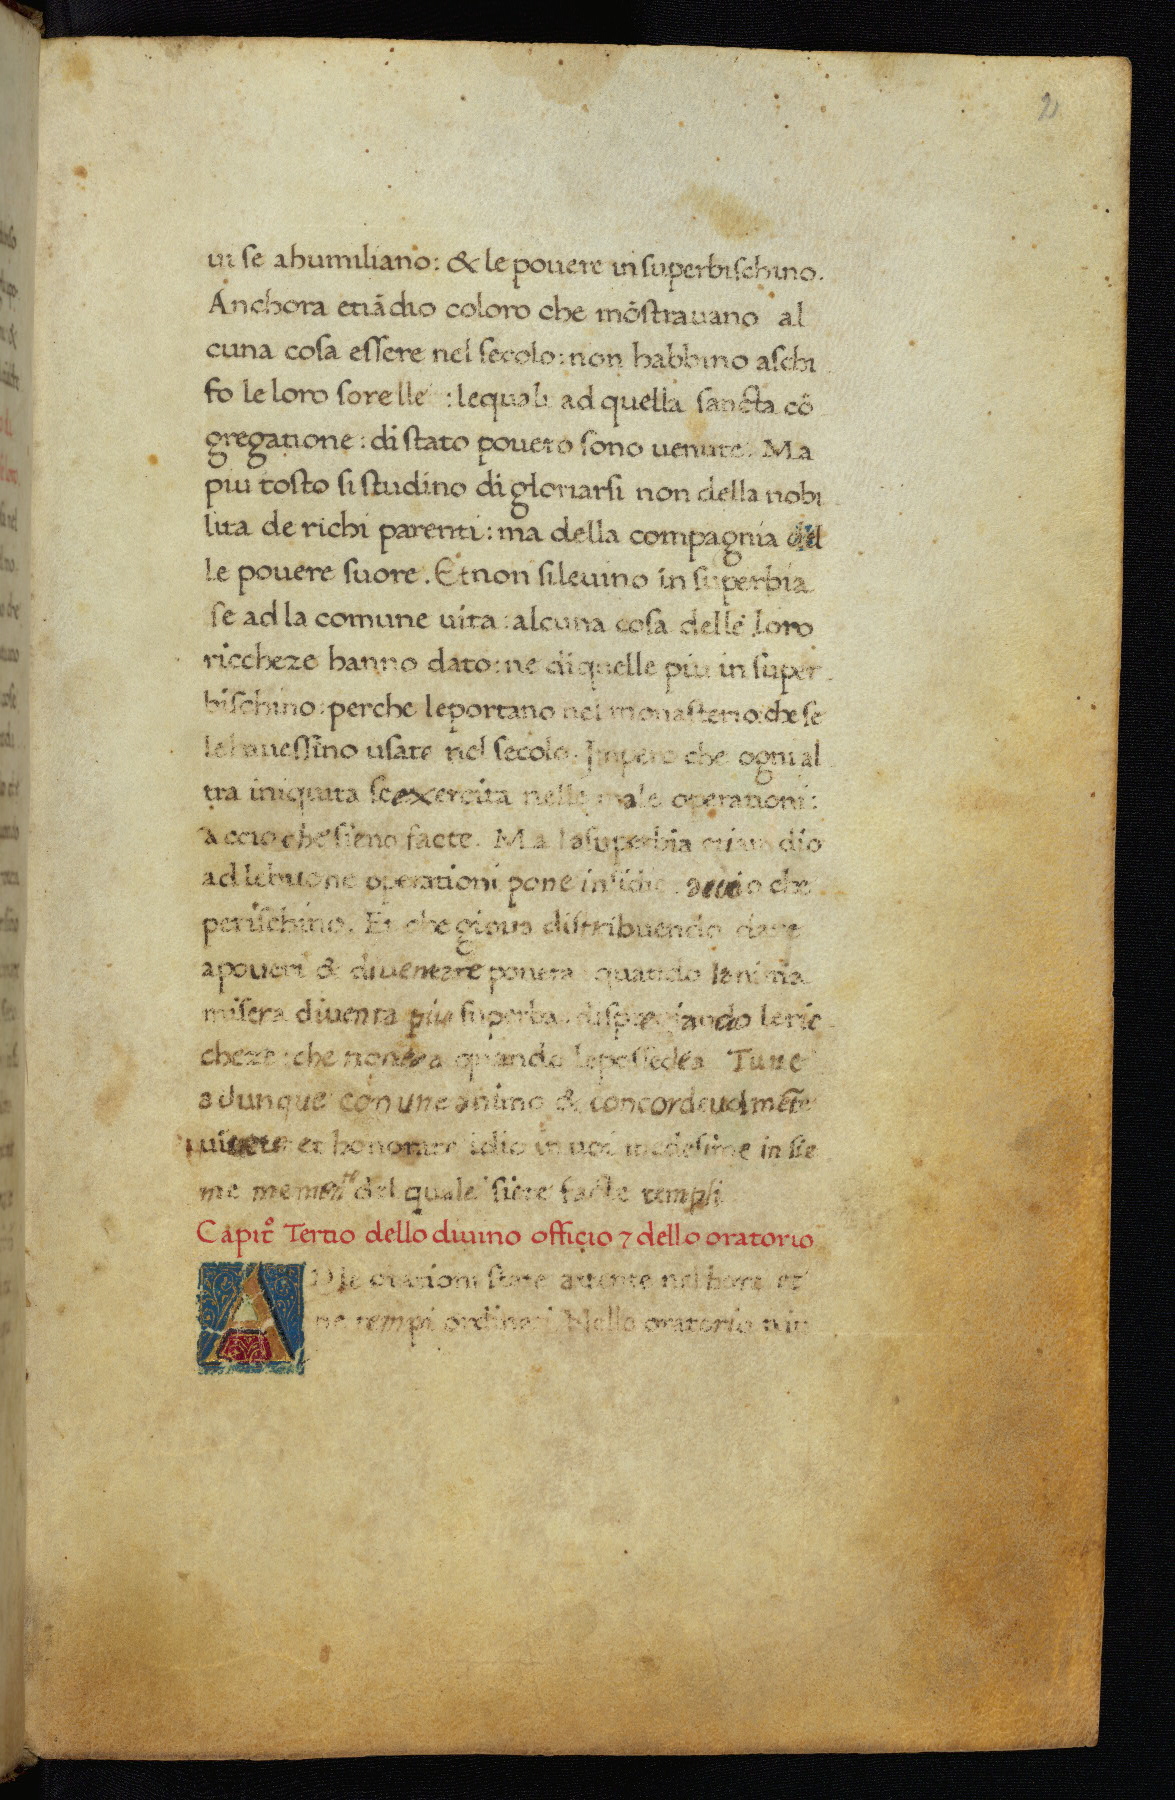 2
in se ahumiliano: & le pouere insuperbischino.
Anchora etiādio coloro che mōstrauano al
cuna cosa essere nel secolo: non habbino aschi
fo le loro sorelle : lequali ad quella sancta cō
gregatione: di stato pouero sono uenute. Ma
piu tosto si studino di gloriarsi non della nobi
lita de richi parenti: ma della compagnia del
le pouere suore. Et non si leuino in superbia
se ad la comune uita: alcuna cosa delle loro
riccheze hanno dato: ne di quelle piu in super
bischino: perche le portano nel monasterio: che se
le hauessino usate nel secolo. Impero che ogni al
tra iniquita se exercita nelle male operationi:
accio che sieno facte. Ma la superbia etiam dio
ad le buone operationi pone insidie: accio che
perischino. Et che gioua distribuendo dare
a poueri & diuentare pouera: quando lanima
misera diuenta piu superba: dispregiando le ric
cheze: che non era quando le possedea Tute
adunque con une animo & concordeuolmēte
uiuete: et honorate idio in uoi medesime insie
me del quale siete facte tempii
Capit.º Tertio dello diuino officio ⁊ dello oratorio
AD le orationi state attente nel hore et
ne tempi ordinati. Nello oratorio niu